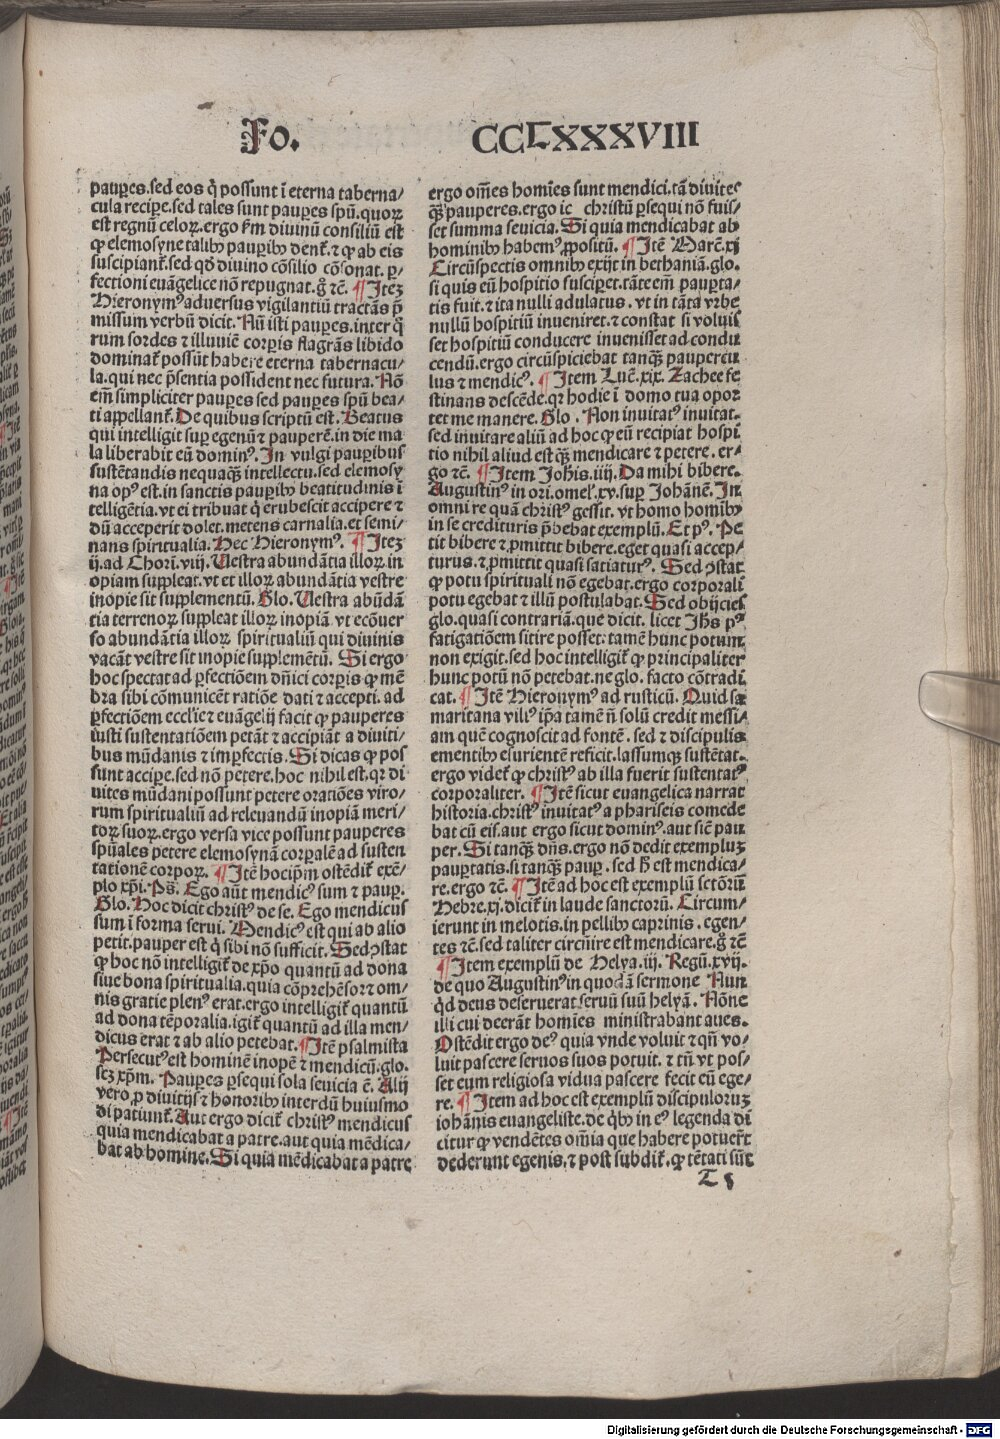 Fo. CCLXXXVIII
paup̲es.sed eos q̇ possunt ī eterna taberna/
cula recip̲e.sed tales sunt paup̲es spū.quoꝝ
est regnū celoꝝ.ergo ẜm diuinū consiliū est
ꝙ elemosyne talibꝰ paup̲ibꝰ denẗ.⁊ ꝙ ab eis
suscipianẗ.sed qḋ diuino cōsilio cōsonat.p̲/
fectioni euāgelice nō repugnat.g̊ ⁊c. ¶ Iteꝫ
Hieronymꝰ aduersus vigilantiū tractās p̄
missum verbū dicit. Nū isti paup̲es.inter q̇
rum sordes ⁊ illuuiē corp̲is flagrās libido
dominaẗ possūt habere eterna tabernacu/
la.qui nec p̄sentia possident nec futura. Nō
em̄ simpliciter paup̲es sed paup̲es spū bea/
ti appellanẗ. De quibus scriptū est. Beatus
qui intelligit sup̲ egenū ⁊ pauperē.in die ma
la liberabit eū dominꝰ. In vulgi paup̲ibus
sustētandis nequaq̄ꝫ intellectu.sed elemosy
na opꝰ est.in sanctis paup̲ibꝰ beatitudinis ī
telligētia.vt ei tribuat q̇ erubescit accipere ⁊
dū acceperit dolet.metens carnalia.et semi/
nans spiritualia. Hec Hieronymꝰ. ¶ Iteꝫ
ij.ad Chori.viij. Uestra abundātia illoꝝ in
opiam suppleat.vt et illoꝝ abundātia vestre
inopie sit supplementū. Glo. Uestra abūdā
tia terrenoꝝ suppleat illoꝝ inopiā vt ecōuer
so abundātia illoꝝ spiritualiū qui diuinis
vacāt vestre sit inopie supplemētū. Si ergo
hoc spectat ad p̲fectiōem dn̄ici corp̲is ꝙ mē
bra sibi cōmunicēt ratiōe dati ⁊ accepti.ad
p̲fectiōem eccl̄ie ⁊ euāgelij facit ꝙ pauperes
iusti sustentatiōem petāt ⁊ accipiāt a diuiti/
bus mūdanis ⁊ imp̲fectis. Si dicas ꝙ pos
sunt accip̲e.sed nō petere.hoc nihil est.qꝛ di
uites mūdani possunt petere oratiōes viro/
rum spiritualiū ad releuandū inopiā meri/
toꝝ suoꝝ.ergo versa vice possunt pauperes
spūales petere elemosynā corp̲alē ad susten
tationē corpoꝝ. ¶ Itē hocip̄m ostēdiẗ exē/
plo xp̄i. Ps̄. Ego aūt mendicꝰ sum ⁊ paup̲.
Glo. Hoc dicit christꝰ de se. Ego mendicus
sum ī forma serui. Mendicꝰ est qui ab alio
petit.pauper est q̇ sibi nō sufficit. Sed ꝯstat
ꝙ hoc nō intelligiẗ de xp̄o quantū ad dona
siue bona spiritualia.quia cōprehēsor ⁊ om/
nis gratie plenꝰ erat.ergo intelligiẗ quantū
ad dona tēporalia.igiẗ quantū ad illa men/
dicus erat ⁊ ab alio petebat. ¶ Itē psalmista
Persecutꝰ est hominē inopē ⁊ mendicū.glo.
seꝫ xp̄m. Paup̲es p̲sequi sola seuicia ē. Alij
vero ꝓ diuitijs ⁊ honoribꝰ interdū huiusmo
di patiunẗ. Aut ergo diciẗ christꝰ mendicus
quia mendicabat a patre.aut quia mēdica/
bat ab homine. Si quia mēdicabat a patre
ergo om̄es homīes sunt mendici.tā diuites
q̄ꝫ pauperes.ergo ic christū p̲sequi nō fuis/
set summa seuicia. Si quia mendicabat ab
hominibꝰ habemꝰ ꝓpositū. ¶ Itē Marc̄.xj
Circūspectis omnibꝰ exijt in bethaniā.glo.
si quis eū hospitio suscip̲et.tāte em̄ paup̲ta/
tis fuit.⁊ ita nulli adulatus.vt in tāta vrbe
nullū hospitiū inueniret.⁊ constat si voluis
set hospitiū conducere inuenisset ad condu
cendū.ergo circūspiciebat tanq̄ꝫ paupercu
lus ⁊ mendicꝰ. ¶ Item Luc̄.xix. Zachee fe
stinans descēde.qꝛ hodie ī domo tua opor
tet me manere. Glo. Non inuitatꝰ inuitat.
sed inuitare aliū ad hoc ꝙ eū recipiat hospi
tio nihil aliud est q̄ꝫ mendicare ⁊ petere.er/
go ⁊c. ¶ Item Joh̄is.iiij. Da mihi bibere.
Augustinꝰ in ori.omel̓.xv.sup̲ Johānē. In
omni re quā christꝰ gessit.vt homo homibꝰ
in se credituris p̄bebat exemplū. Et pꝰ. Pe
tit bibere ⁊ ꝓmittit bibere.eget quasi accep/
turus.⁊ ꝓmittit quasi satiaturꝰ. Sed ꝯstat
ꝙ potu spirituali nō egebat.ergo corporali
potu egebat ⁊ illū postulabat. Sed obijcies
glo.quasi contrariā.que dicit. licet Jh̄s pꝰ
fatigatiōem sitire posset.tamē hunc potum
non exigit.sed hoc intelligiẗ ꝙ principaliter
hunc potū nō petebat.ne glo. facto cōtradi
cat. ¶ Itē Hieronymꝰ ad rusticū. Quid sa
maritana viliꝰ ip̄a tamē n̄ solū credit messi/
am quē cognoscit ad fontē. sed ⁊ discipulis
ementibꝰ esurientē reficit.lassumqꝫ sustētat.
ergo videẗ ꝙ christꝰ ab illa fuerit sustentatꝰ
corporaliter. ¶ Itē sicut euangelica narrat
historia.christꝰ inuitatꝰ a phariseis comede
bat cū eis.aut ergo sicut dominꝰ.aut sic̄ pau
per. Si tanq̄ꝫ dn̄s.ergo nō dedit exempluꝫ
paup̲tatis.si tanq̄ꝫ paup̲. sed h̄ est mendica/
re.ergo ⁊c. ¶ Itē ad hoc est exemplū sc̄toruꝫ
Hebre.xj.diciẗ in laude sanctorū. Circum/
ierunt in melotis.in pellibꝰ caprinis.egen/
tes ⁊c.sed taliter circūire est mendicare.g̊ ⁊c
¶ Item exemplū de Helya.iij. Regū.xvij.
de quo Augustinꝰ in quodā sermone Nun
qḋ deus deseruerat seruū suū helyā. Nōne
illi cui deerāt homīes ministrabant aues.
Ostēdit ergo deꝰ quia vnde voluit ⁊ qn̄ vo/
luit pascere seruos suos potuit. ⁊ tn̄ vt pos/
set eum religiosa vidua pascere fecit eū ege/
re. ¶ Item ad hoc est exemplū discipuloruꝫ
iohānis euangeliste.de q̇bꝰ in eꝰ legenda di
citur ꝙ vendētes om̄ia que habere potuer̄t
dederunt egenis.⁊ post subdiẗ.ꝙ tētati sūt
T 5
Digitalisierung gefördert durch die Deutsche Forschungsgemeinschaft - DFG